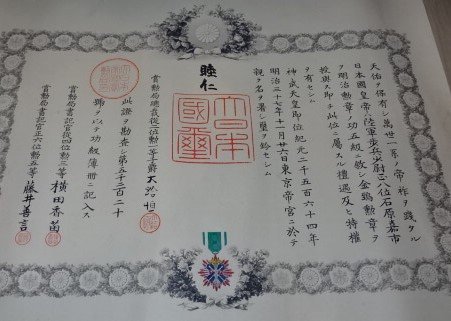 天佑ヲ保有シ萬世一系ノ帝祚ヲ踐タル
日本國皇帝ハ陸軍歩兵少尉正八位石原嘉市
ヲ明治勲章ノ功五級ニ敍シ金鵄勲章ヲ
授與ス即チ此位ニ屬スル禮遇及ヒ特權
ヲ有セシム
神武天皇即位紀元二千五百六十四年
明治三十七年十一月廿六日東京帝宮ニ於テ
親ラ名ヲ署シ璽ヲ鈐セシム
睦仁
大日本國璽
賞勲局總裁從二位勲一等子爵大給恒
此證ヲ勘査シ第五千二百二十
號ヲ以テ功級簿冊ニ記入ス
賞勲局書記官從四位勲三等横田香苗
賞勲局書記官正六位勲五等藤井善言